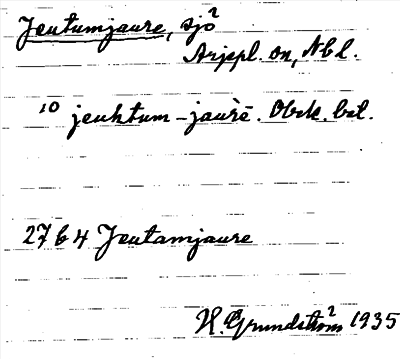 Jeutumjaure, sjö²
Arjepl. sn, Nbl.
10 jeuktum-jaùrē. Obek. bet.
27 b 4 Jeutamjaure
H. Grundström² 1935